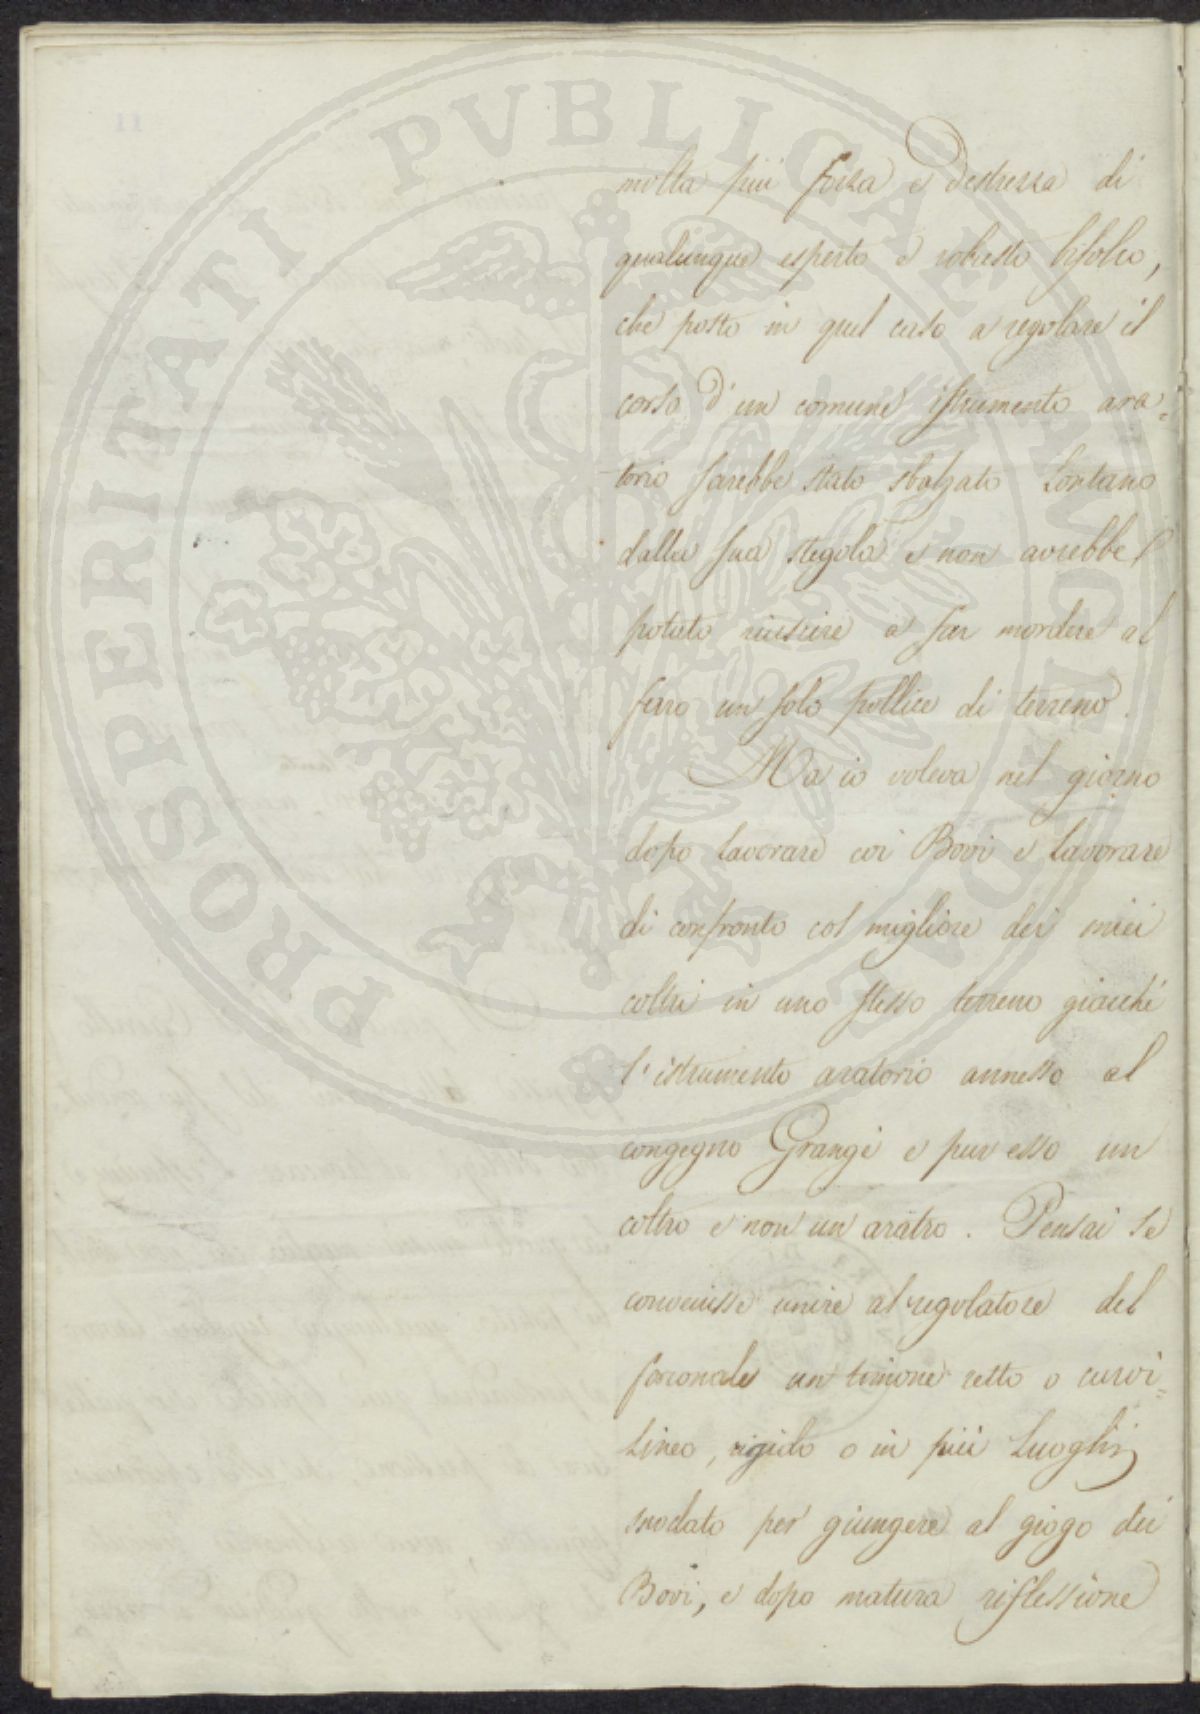 PROSPERITATI PVBLICAE AVGENDAE
molta più forza e destrezza di
qualunque esperto e robusto bifolco,
che posto in quel caso a regolare il
corso d'un comune istrumento ara=
torio sarebbe stato sbalzato lontano
dalla sua stegola e non avrebbe
potuto riuscire a far mordere al
ferro un solo pollice di terreno.
Ma io voleva nel giorno
dopo lavorare coi Bovi e lavorare
di confronto col migliore dei miei
coltri in uno stesso terreno giacchè
l'istrumento aratorio annesso al
congegno Grangè e pur esso un
coltro e non un aratro. Pensai se
convenisse unire al regolatore del
forconale un timone retto o curvi=
lineo, rigido o in più luoghi
snodato per giungere al giogo dei
Bovi, e dopo matura riflessione